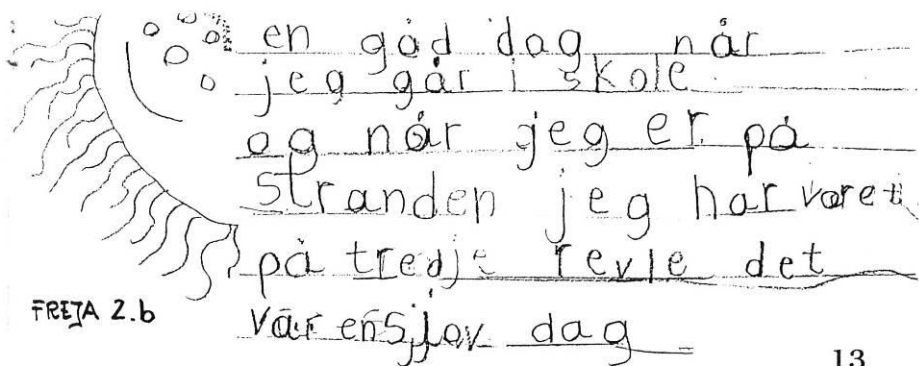 en gåd dag når
jeg går i skole.
og når jeg er på
Stranden jeg har varet
på tredje revle det
var ensjov dag
FREJA 2.b
13